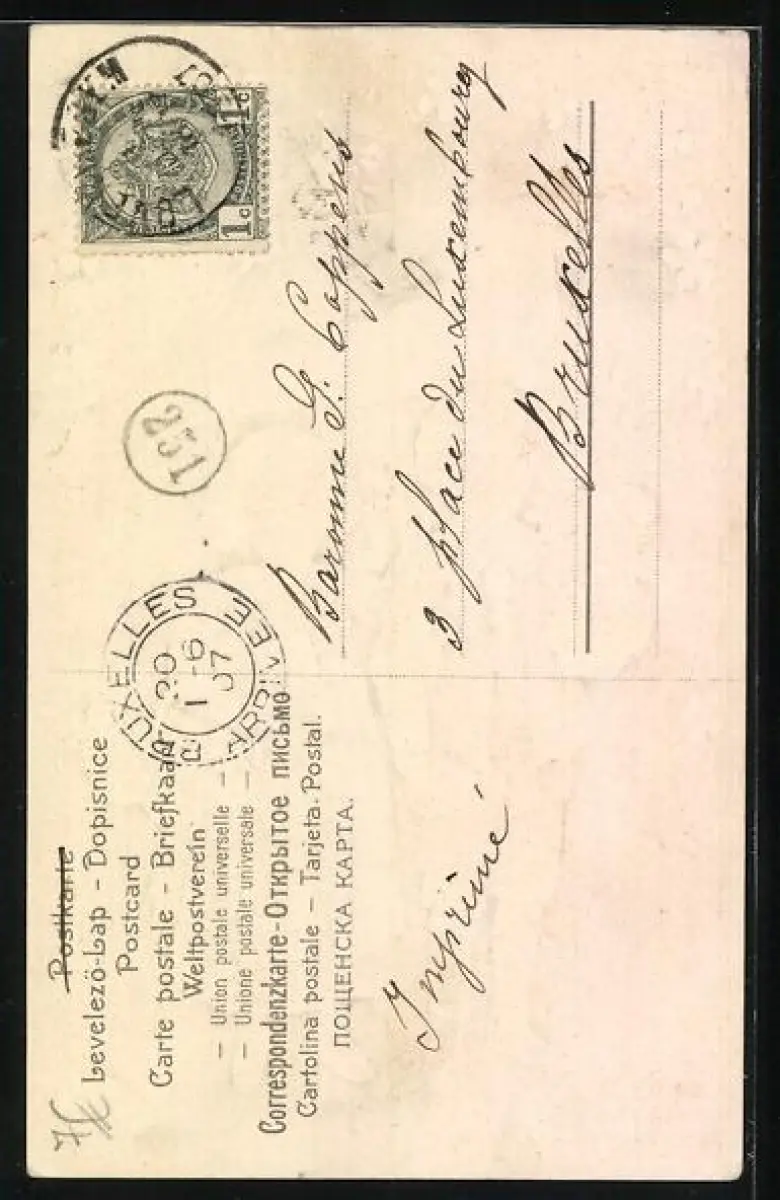 Postkarte
Levelező-Lap - Dopisnice
Postcard
Carte postale - Briefkaart
Weltpostverein
- Union postale universelle -
- Unione postale universale -
Correspondenzkarte - Открытое письмо
Cartolina postale - Tarjeta Postal.
ПОЩЕНСКА КАРТА.
Imprimé
BRUXELLES
20
1-6
07
ARRIVEE
152
1c 1c
Baronne G. Coppens
3 place du Luxembourg
Bruxelles